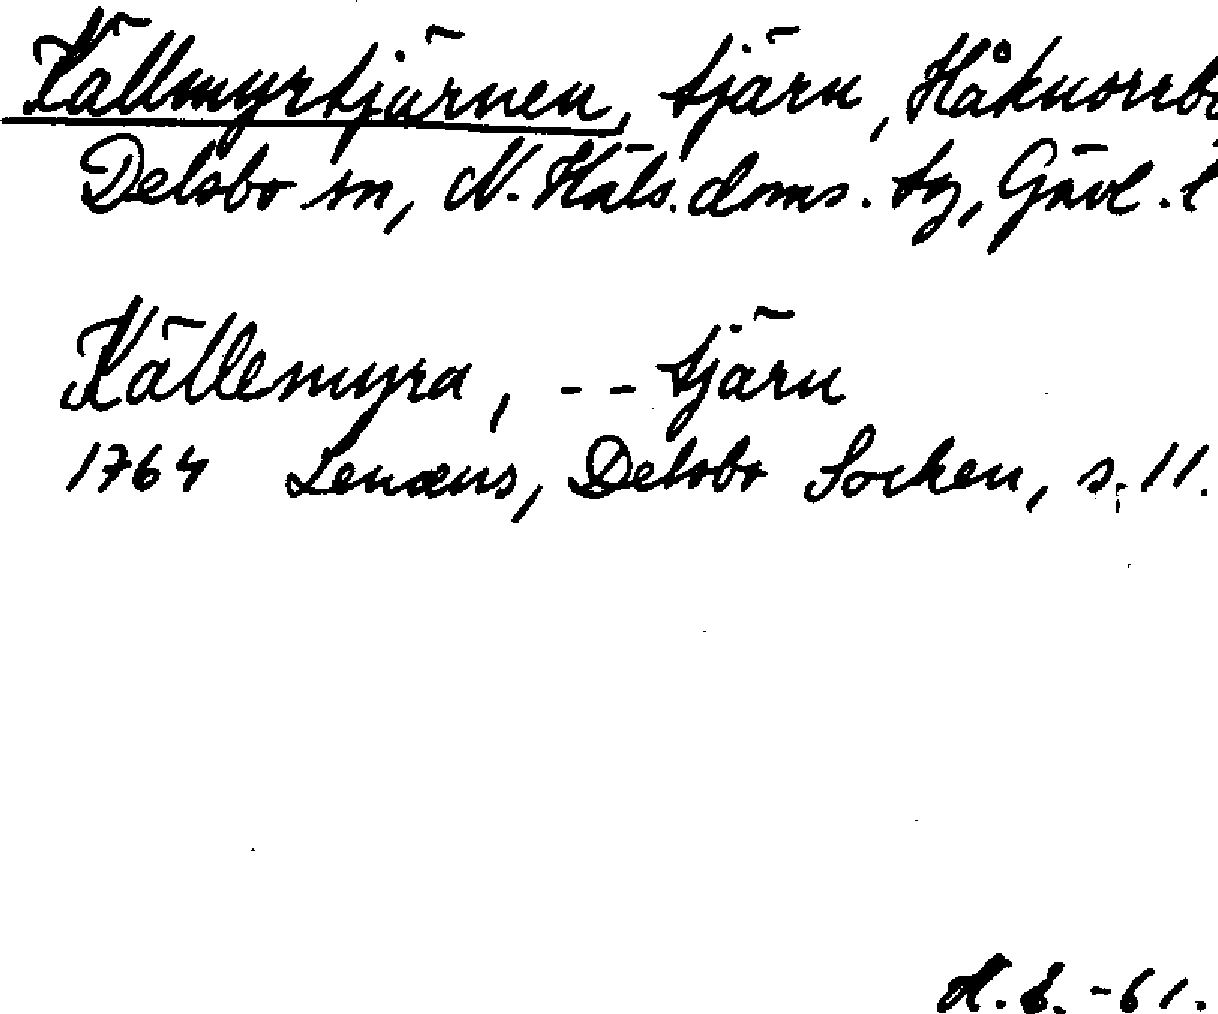 Källmyrtjärnen, tjärn, Håknorrbo
Delsbo sn, N. Häls. doms. tg, Gävl. l
Källemyra, - - tjärn
1764 Lenæus, Delsbo Socken, s. 11.
H. S. -61.